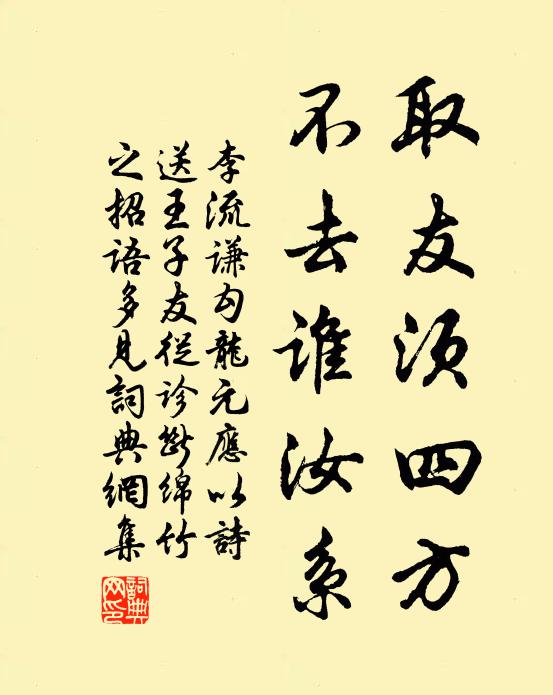 取友須四方
不去誰汝系
李流謙勾龍元應以詩
送王子友從診斷綿竹
之招語多見詞典網集
詞典網印